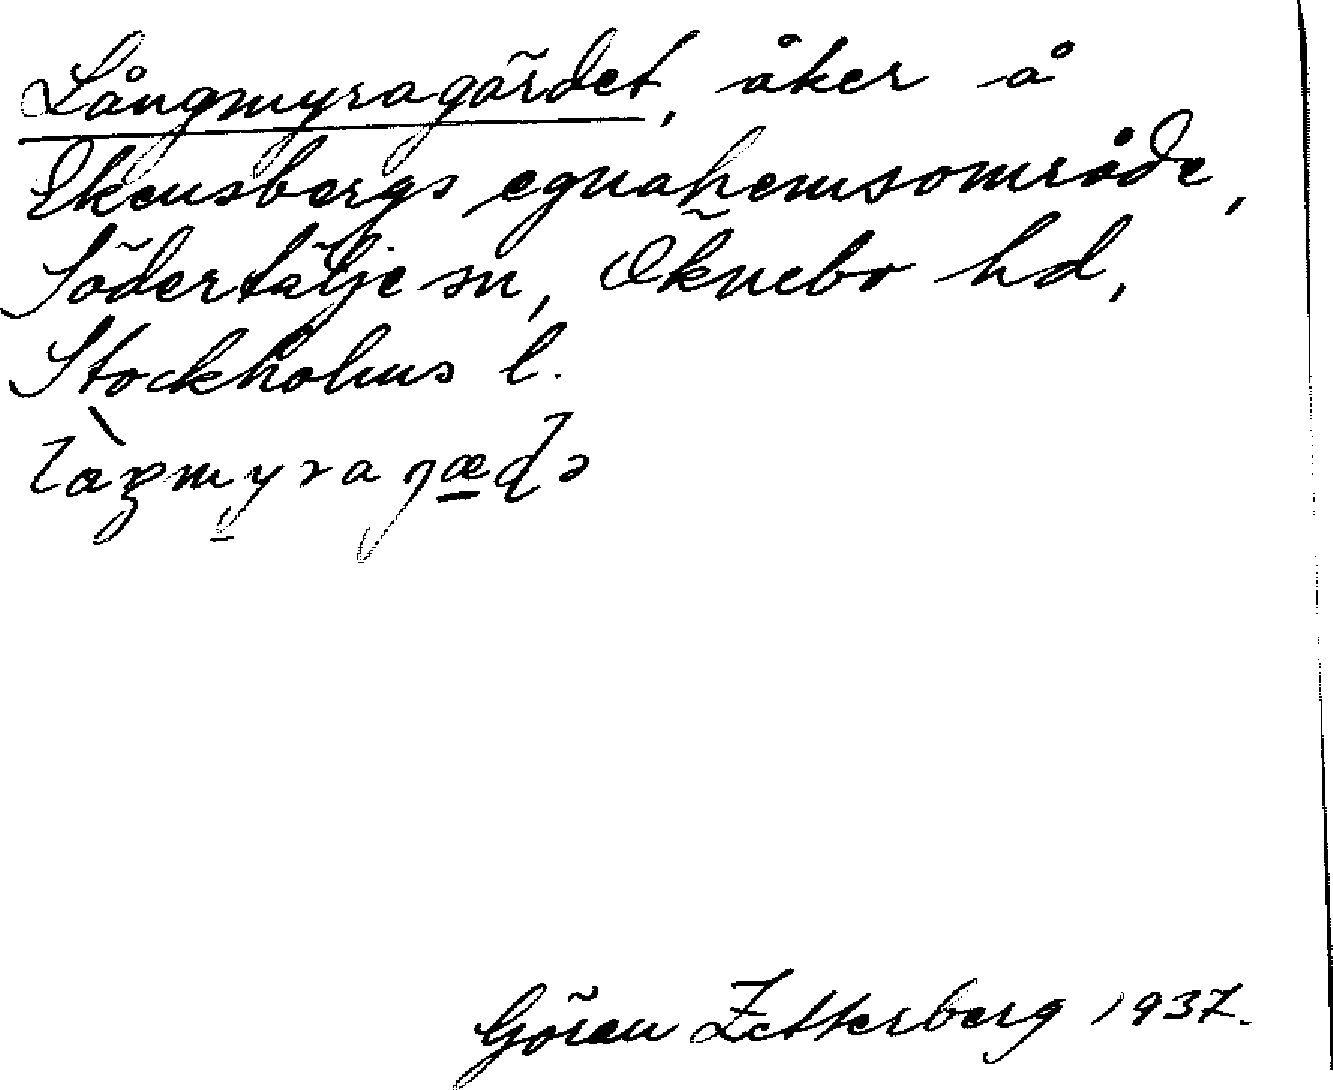 Långmyragärdet, åker å
Ekensbergs egnahemsområde,
Södertälje sn, Öknebo hd,
Stockholms l.
Göran Zetterberg 1937.